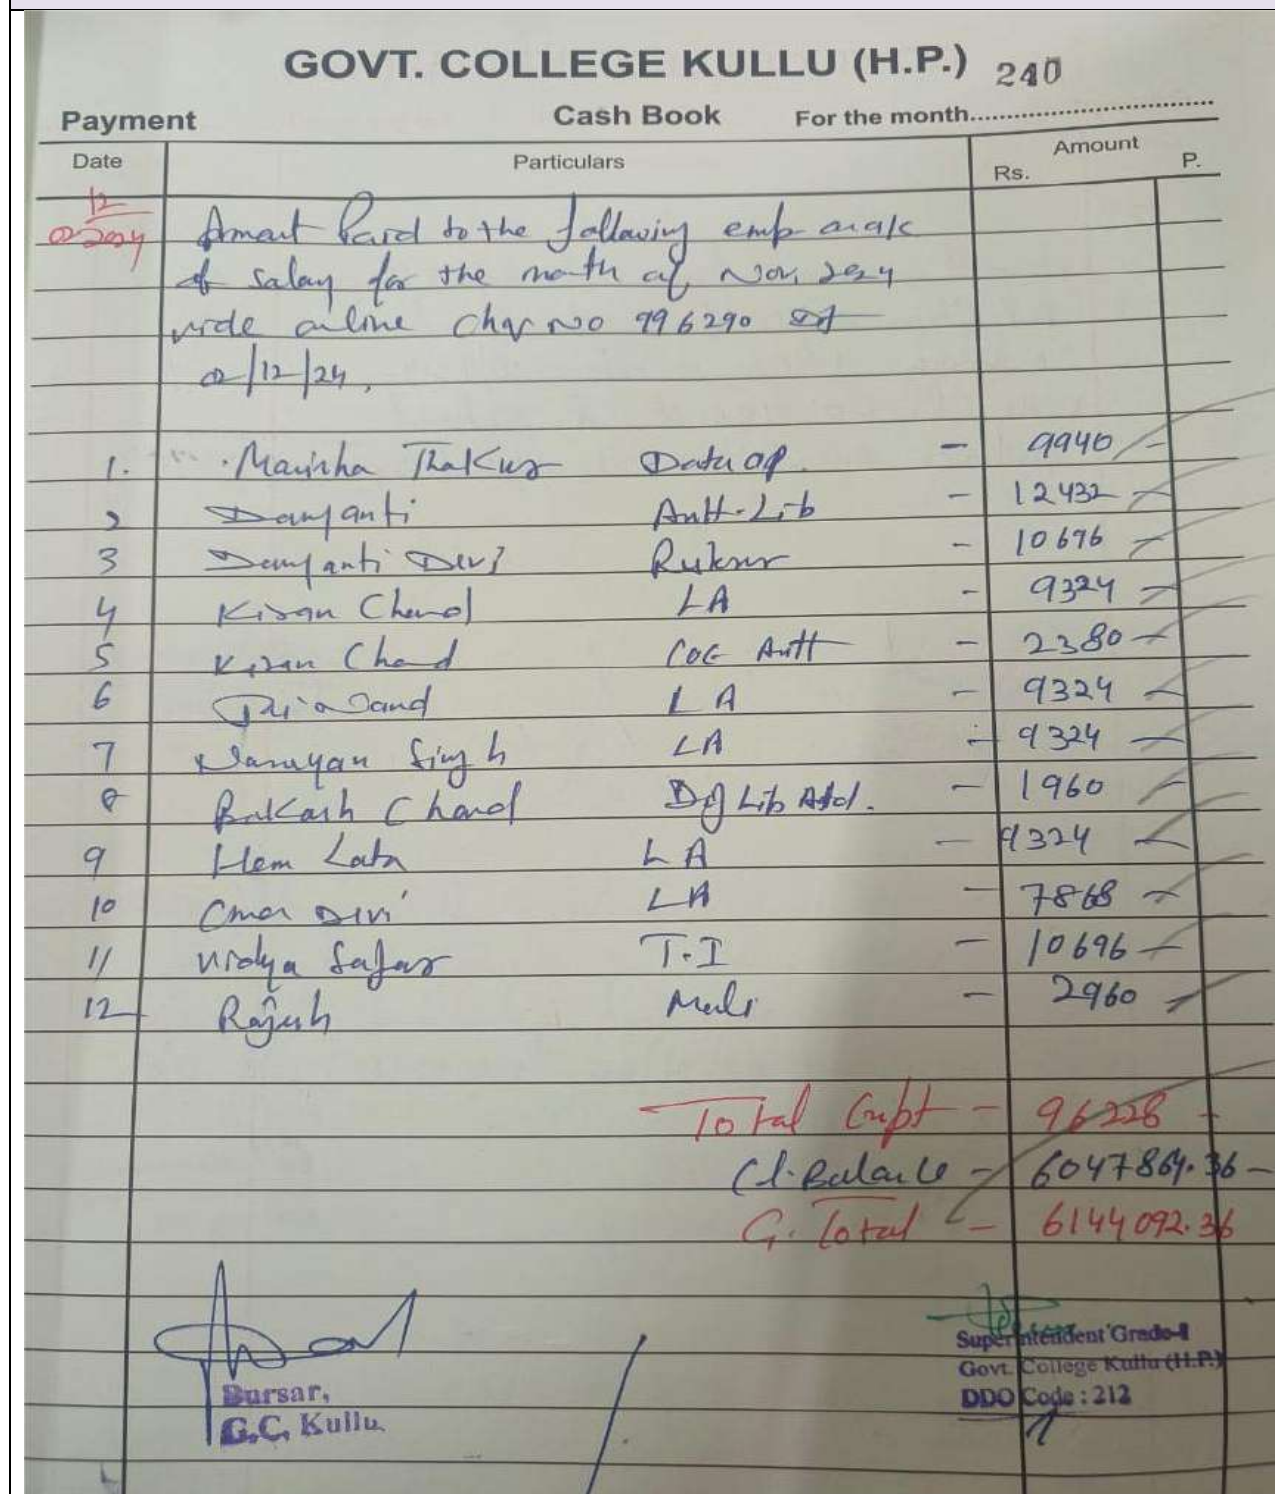 GOVT. COLLEGE KULLU (H.P.) 240
Payment Cash Book For the month
Date Particulars Amount
Rs. P.
12
02-2024 Amount Paid to the following emp on a/c
of salary for the month of Nov, 2024
vide online Chq No 996290 dt
02/12/24,
1. Manisha Thakur Data op. - 9940 -
2 Damyanti Antt. Lib - 12432 -
3 Damyanti Devi - 10696 -
4 Kisan Chand LA - 9324 -
5 Kisan Chand COE Antt - 2380 -
6 LA - 9324 -
7 Narayan Singh LA - 9324 -
8 Prakash Chand Dg Lib Atd. - 1960 -
9 Hem Lata LA - 9324 -
10 Devi LA - 7868 -
11 Vidya Sagar T.I - 10696 -
12 Rajesh Mali - 2960 -
Total - 96228 -
Cl. Balance - 6047864.36 -
G. Total - 6144092.36
Bursar,
G.C. Kullu
Superintendent Grade-I
Govt. College Kullu (H.P.)
DDO Code : 212